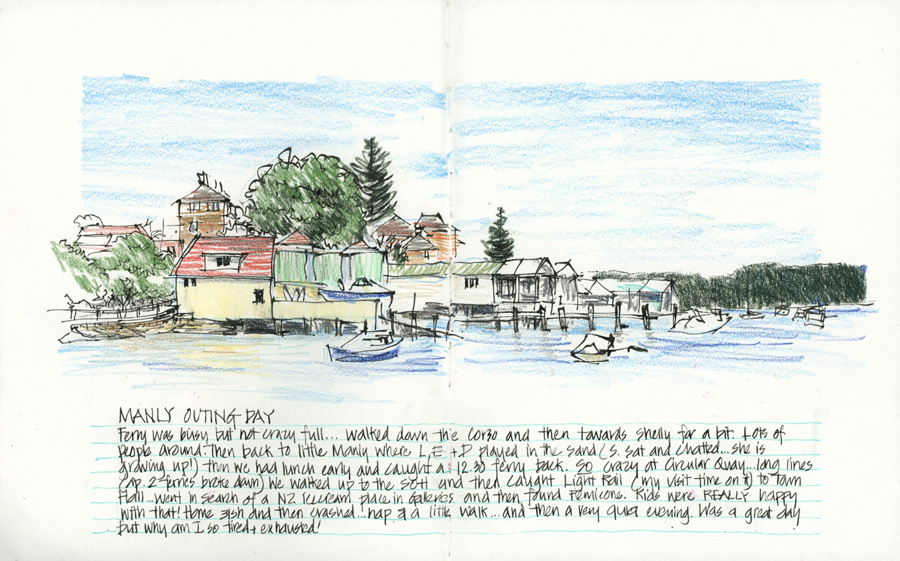 MANLY OUTING DAY
Ferry was busy but not crazy full... walked down the Corso and then towards Shelly for a bit. Lots of
people around. Then back to little Manly where L, E + D played in the sand (S. sat and chatted... she is
growing up!) then we had lunch early and caught a 12.30 ferry back. SO crazy at Circular Quay... long lines
(ap. 2 ferries broke down) We walked up to the and then caught Light Rail (my 1st time on it) to Town
Hall... went in search of a NZ Icecream place in Galeries and then found Remicone. Kids were REALLY happy
with that! Home 3ish and then crashed... nap & a little walk... and then a very quiet evening. Was a great day
but why am I so tired + exhausted!